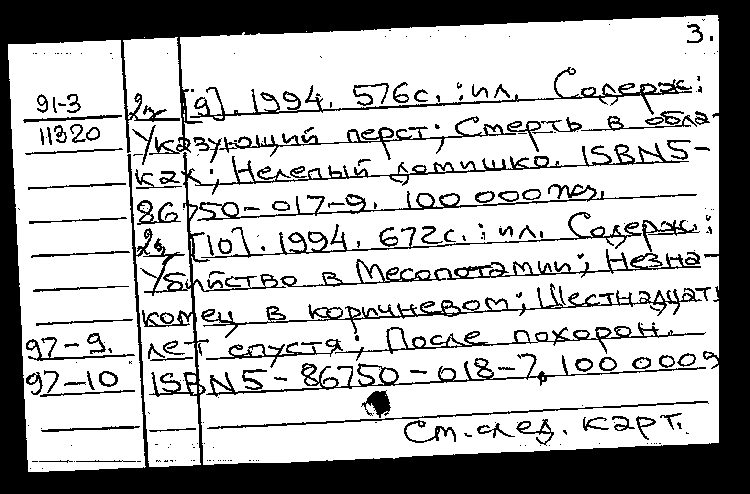 3.
91-3 2э [9]. 1994. 576с. : ил. Содерж:
11320 Указующий перст; Смерть в обла-
ках; Нелепый домишко. ISBN 5-
86750-017-9. 100 000 экз.
2э [10]. 1994. 672с. : ил. Содерж.:
Убийство в Месопотамии; Незна-
комец в коричневом; Шестнадцать
97-9. лет спустя; После похорон.
97-10 ISBN 5-86750-018-7. 100 000э
См. след. карт.